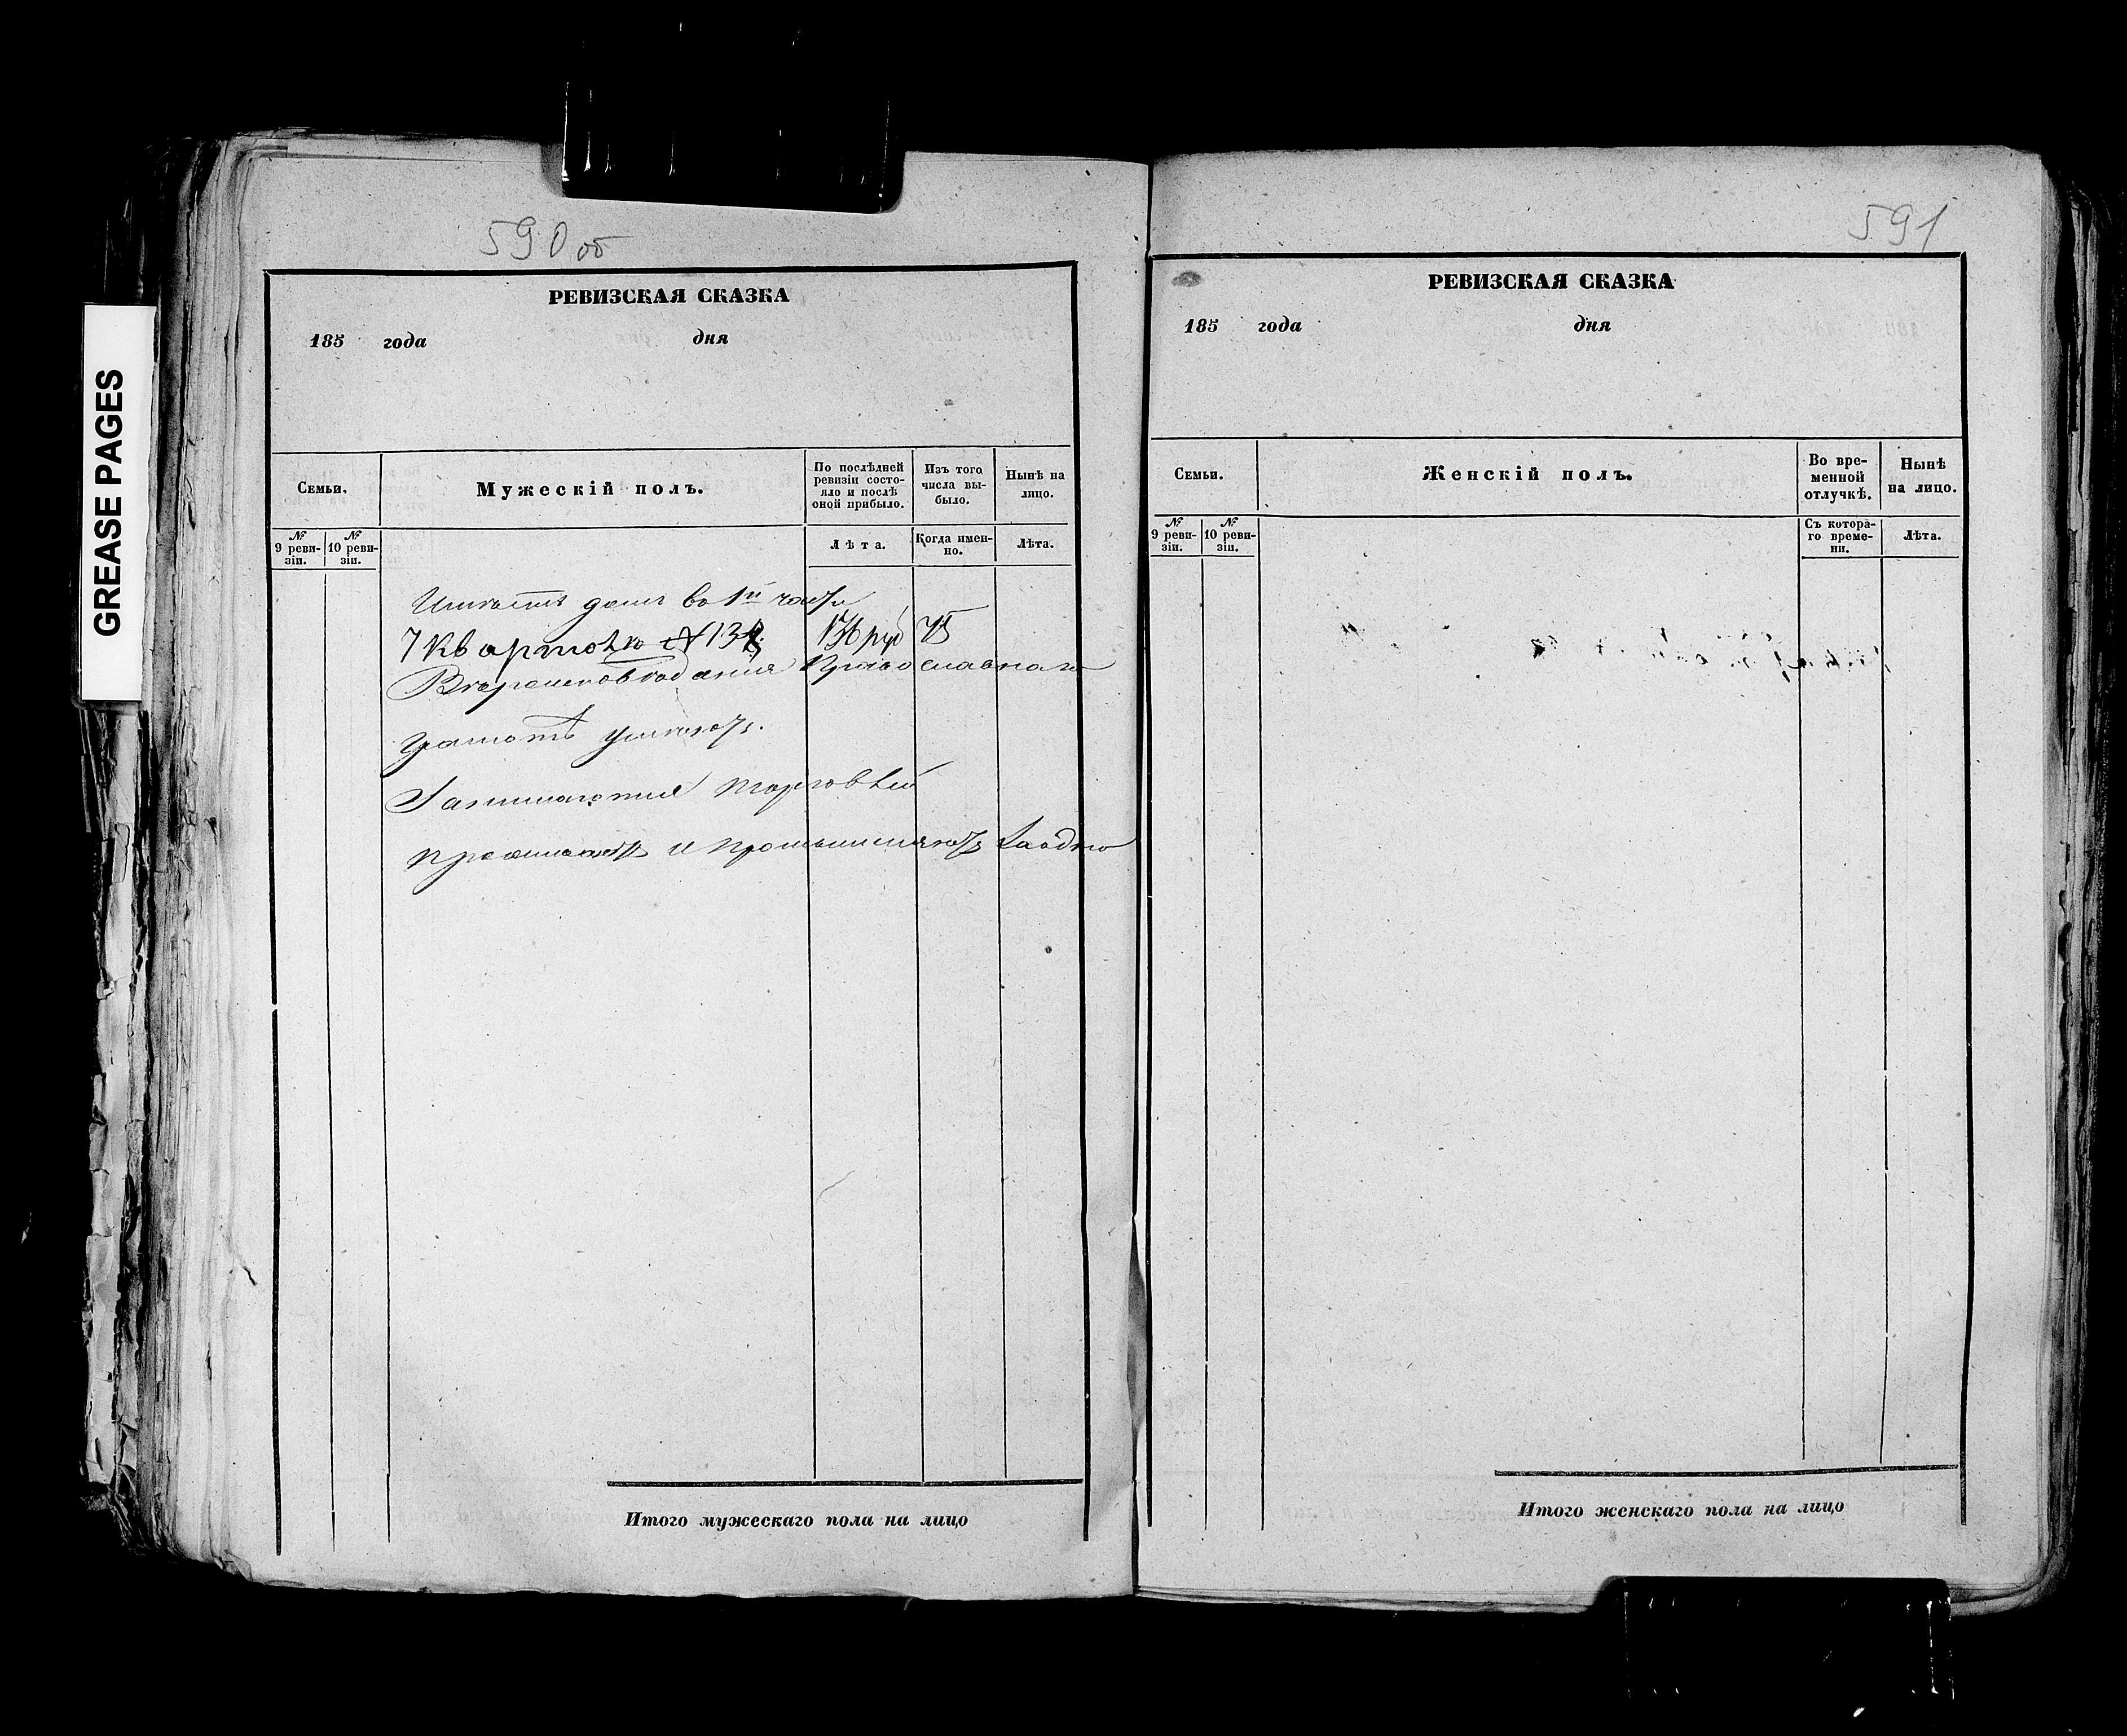 GREASE PAGES
590 об
РЕВИЗСКАЯ СКАЗКА
185 года дня
Семьи.
Мужескій полъ.
По послѣдней ревизіи состояло и послѣ оной прибыло.
Изъ того числа выбыло.
Нынѣ на лицо.
№ 9 ревизіи.
№ 10 ревизіи.
Лѣта.
Когда именно.
Лѣта.
Имѣетъ домъ во 1й части
7 Кварталѣ № 13 руб
Вѣроисповѣданія Православнаго
грамотѣ умѣютъ.
Занимаются торговлей
и промышляютъ Заодно
Итого мужескаго пола на лицо
591
РЕВИЗСКАЯ СКАЗКА
185 года дня
Семьи.
Женскій полъ.
Во временной отлучкѣ.
Нынѣ на лицо.
№ 9 ревизіи.
№ 10 ревизіи.
Съ котораго времени.
Лѣта.
Итого женскаго пола на лицо